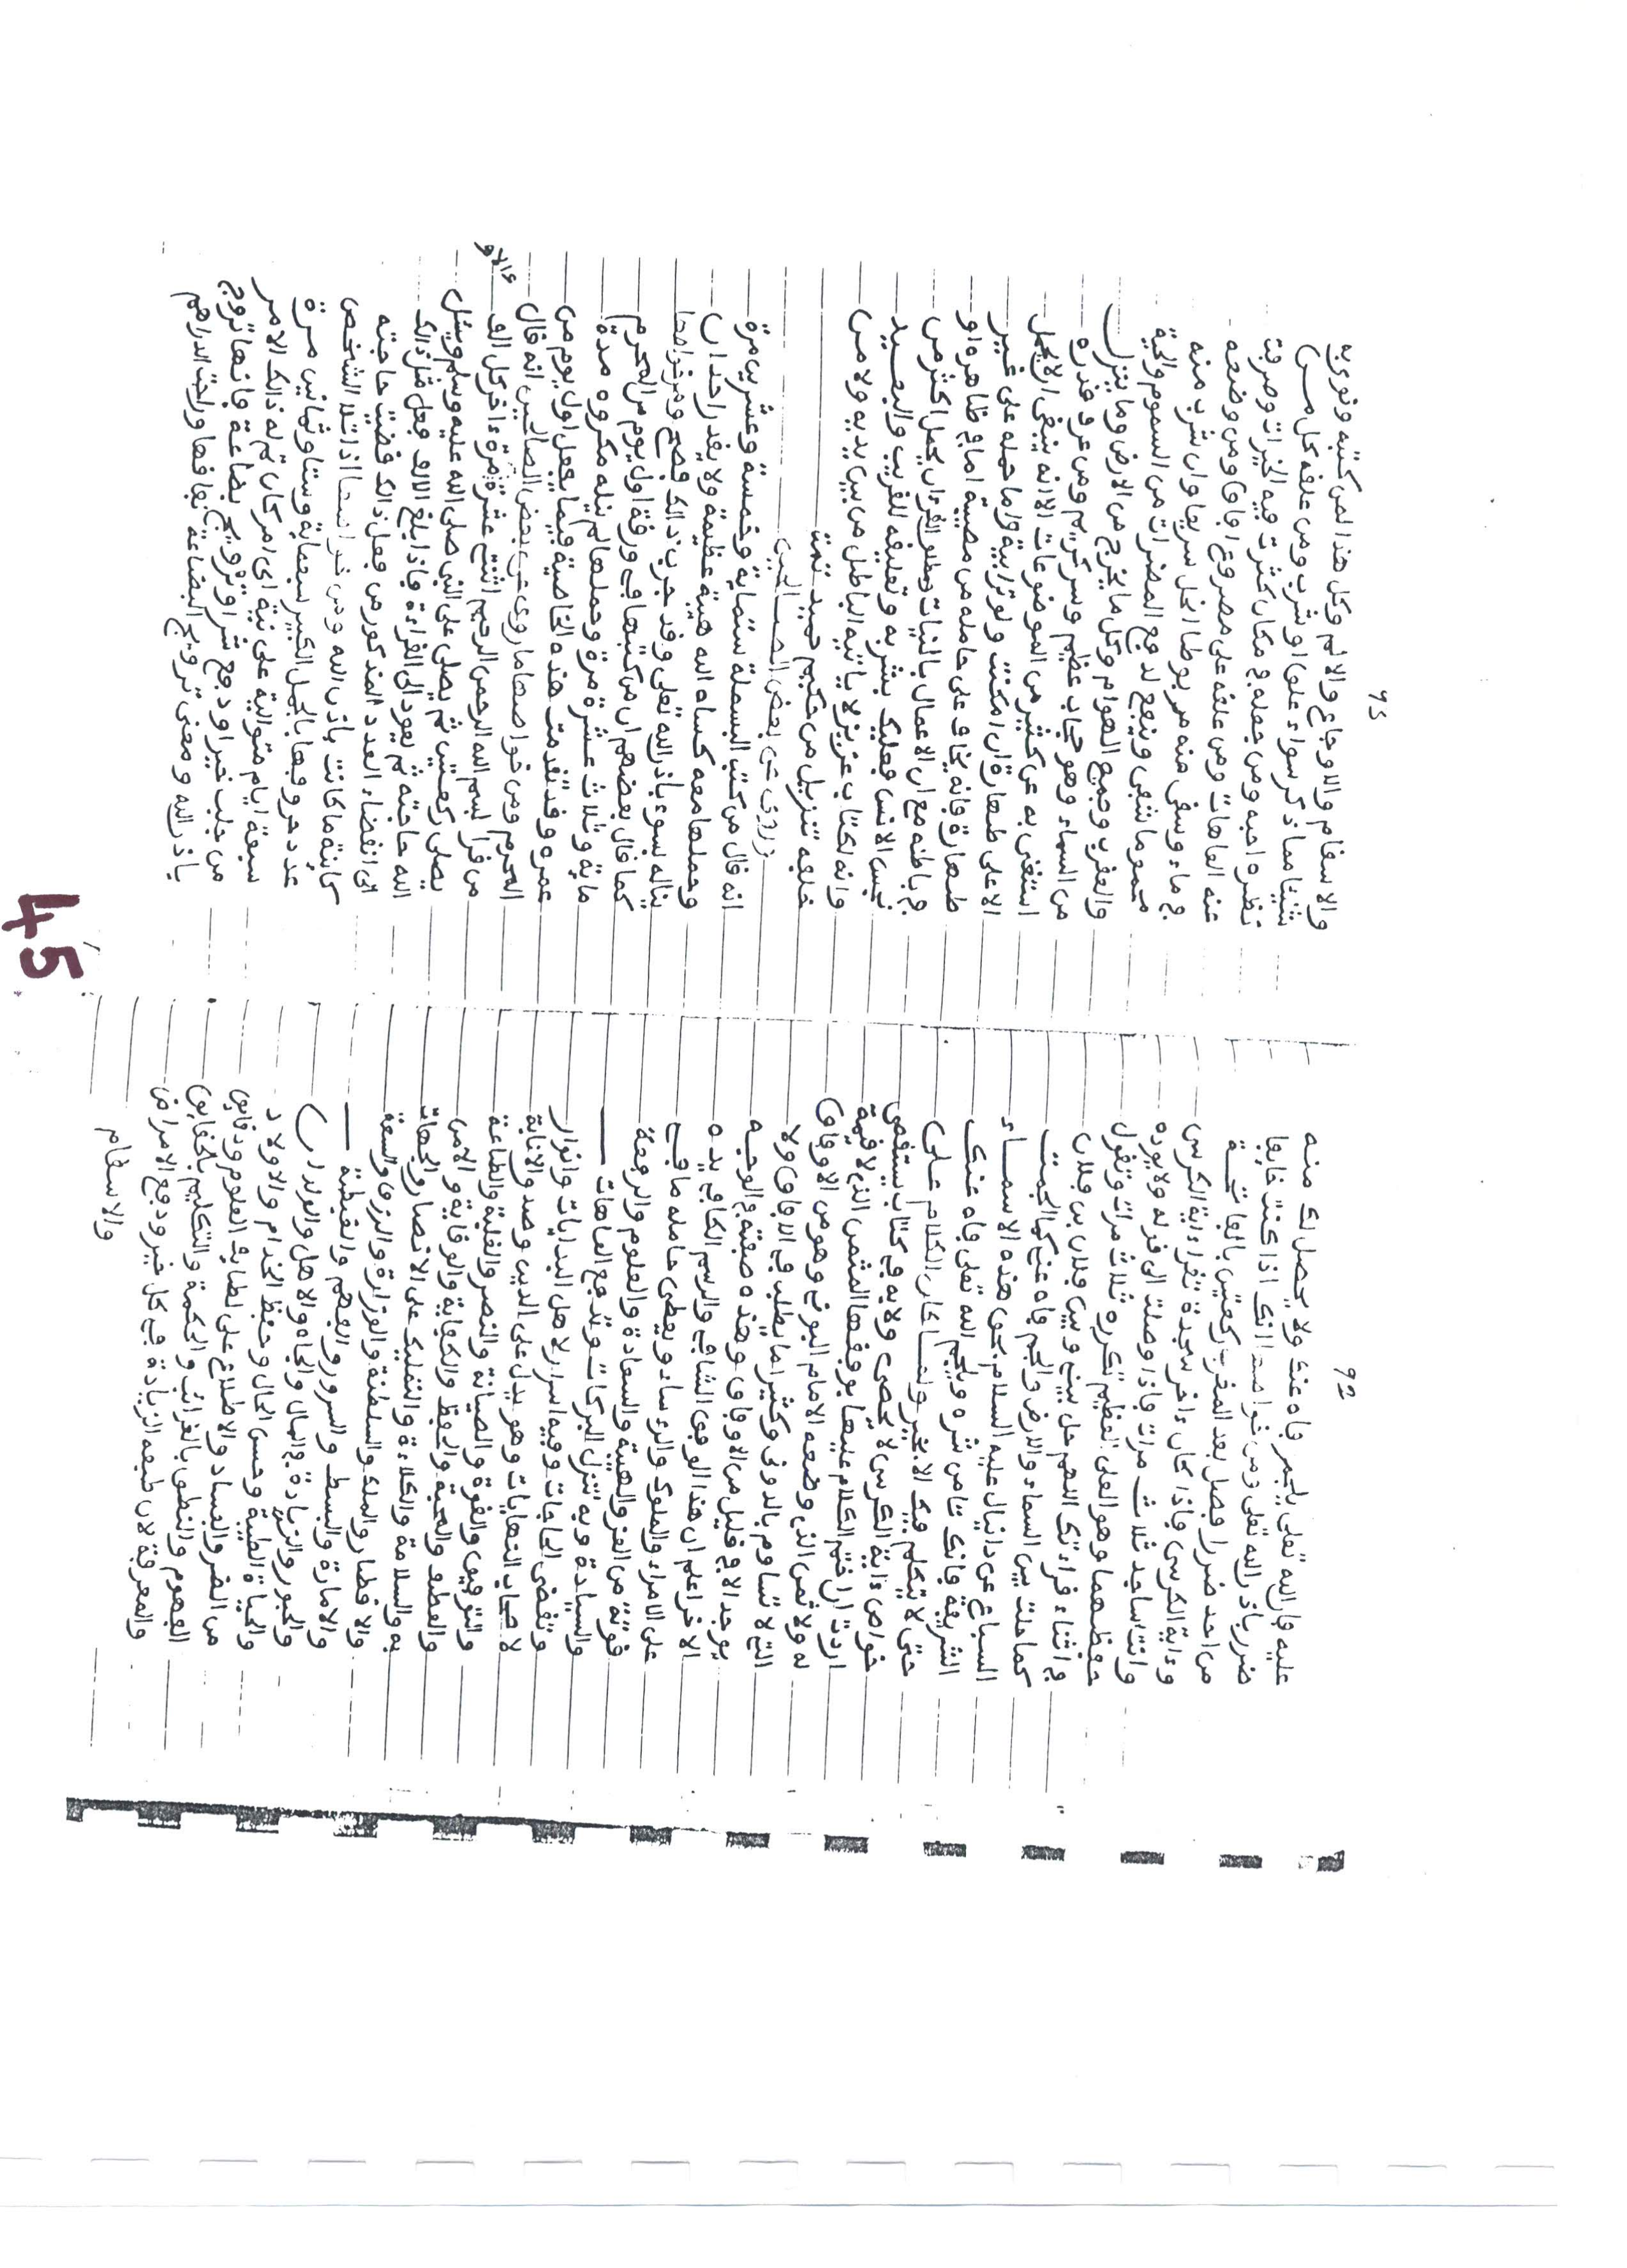 92
عليه فان الله تعلى يلجمر فاه عنك ولا يحصل لك منه
ضرر باذن الله تعلى ومن خواصها انك اذا كنت خايفا
من احد ضررا فصل بعد المغرب ركعتين بالفاتحة
وءاية الكرسي فاذا كان ءاخر سجدة تقرا ءاية الكرسي
وانت ساجد ثلاث مرات فاذا وصلت الى قوله ولا يوده
حفظهما وهو العلي العظيم تكرره ثلاث مرات وتقول
في اثناء قراءتك اللهم حل بيني وبين فلان بن فلان
كما حلت بين السماء والارض والجم فاه عني كما الجمت
السباع عن دانيال عليه السلام بحق هذه الاسماء
الشريفة فانك تامن شره ويلجم الله تعلى فاه عنك
حتى لا يتكلم فيك الا بخير ولما كان الكلام على
خواص ءاية الكرسي لا يحصى ولا به في كتاب يستقصى
اردت ان اختم الكلام عليها بوفقها المثمن الذي لا قيمة
له ولا ثمن الذي وضعه الامام البوني وهو من الاوفاق
التي لا تساوم بالدون وكثيرا ما يطلب في الافاق ولا
يوجد الا في قليل من الاوفاق وهذه صفته في الوجه
الاخر اعلم ان هذا الوفق الشافي والرسم الكافي يده
على الامراء والملوك والرءساء ويعطى حامله ما في
قوته من العز والهيبة والسعادة والعلوم والرفعة
والسيادة وبه تنزل البركات وتدفع العاهات
وتقضى الحاجات وفيه اسرار لاهل البدايات وانوار
لاصحاب النهايات وهو يدل على الدين وصدق الانابة
والتوفيق والقوة والصيانة والنصر والغلبة والطاعة
والعطف والمحبة والحفظ والكفاية والوقاية والامن
به والسلامة والكلاءة والتمليك على الانصار والجهات
والاقطار والملك والسلطنة والوزارة والرزق والسعة
والامارة والبسط والسرور والفهم والفطنة
والحبور والزيادة في المال والجاه والاهل والولدان
والحياة الطيبة وحسن الحال وحفظ الخدام والاولاد
من الضر والفساد والاطلاع على لطايف العلوم ودقايق
الفهوم والنطق بالغرائب والحكمة والتكليم بالحقايق
والمعرفة لان طبعه الزيادة في كل خير ودفع الامراض
والاسقام
93
والاسقام والاوجاع والالم وكل هذا لمن كتبه ونوى به
شيئا مما ذكر سواء علق او شرب ومن علقه كل من
نظره احبه ومن جعله في مكان كثرت فيه الخيرات وصرفت
عنه العاهات ومن علقه على مصروع افاق ومن وضعه
في ماء وسقى منه مربوطا انحل سريعا وان شرب منه
محموما شفي وينفع لدفع المضرات من السموم والحية
والعقرب وجميع الهوام وكل ما يخرج من الارض وما ينزل
من السماء وهو حجاب عظيم وسر كريم ومن عرف قدره
استغنى به عن كثير من الموضوعات الا انه ينبغي الا يحمل
الا على طهارة ان امكنت ولو ترابية واما حمله على غير
طهارة فانه يخاف على حامله من مصيبة اما في ظاهره او
في باطنه مع ان الاعمال بالنيات وطلو القرءان يحمل اكثر من
نجس الانس فعليك بشربه وتعليقه للقريب والبعيد
وانه لكتاب عزيز لا ياتيه الباطل من بين يديه ولا من
خلفه تنزيل من حكيم حميد تمت
وروي عن بعض الصالحين
انه قال من كتب البسملة ستماية وخمسة وعشرين مرة
وحملها معه كساه الله هيبة عظيمة ولا يقدر احد ان
يناله بسوء باذن الله تعلى وقد جرب ذالك فصح ومن خواصها
كما قال بعضهم ان من كتبها في ورقة اول يوم من المحرم
ماية وثلاث عشرة مرة وحملها لم ينله مكروه مدة
عمره وقد تقدمت هذه الخاصية فيما يفعل اول يوم من
المحرم ومن خواصها ما روي عن بعض الصالحين انه قال
من قرا بسم الله الرحمن الرحيم اثنتي عشرة مرة ءاخر كل الف
ءالاف
يصلي ركعتين ثم يصلي على النبي صلى الله عليه وسلم ويسئل
الله حاجته ثم يعود الى القراءة فاذا بلغ الالف فعل مثل ذالك
الى انقضاء العدد المذكور من فعل ذالك قضيت حاجته
كاينة ما كانت باذن الله ومن خواصها اذا تلا الشخص
عدد حروفها بالجمل الكبير سبعماية وستا وثمانين مرة
سبعة ايام متوالية على نية اي امر كان تم له ذالك الامر
من جلب خير او دفع شر او ترويج بضاعة فانها تروج
باذن الله ومعنى ترويج البضاعة نفاقها وراجت الدراهم
45